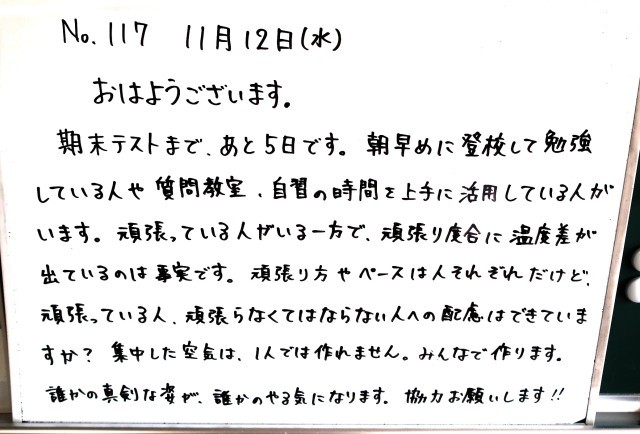 No.117 11月12日(水)
おはようございます。
期末テストまで、あと5日です。朝早めに登校して勉強
している人や質問教室、自習の時間を上手に活用している人が
います。頑張っている人がいる一方で、頑張り度合に温度差が
出ているのは事実です。頑張り方やペースは人それぞれだけど、
頑張っている人、頑張らなくてはならない人への配慮はできていま
すか？集中した空気は、1人では作れません。みんなで作ります。
誰かの真剣な姿が、誰かのやる気になります。協力お願いします!!